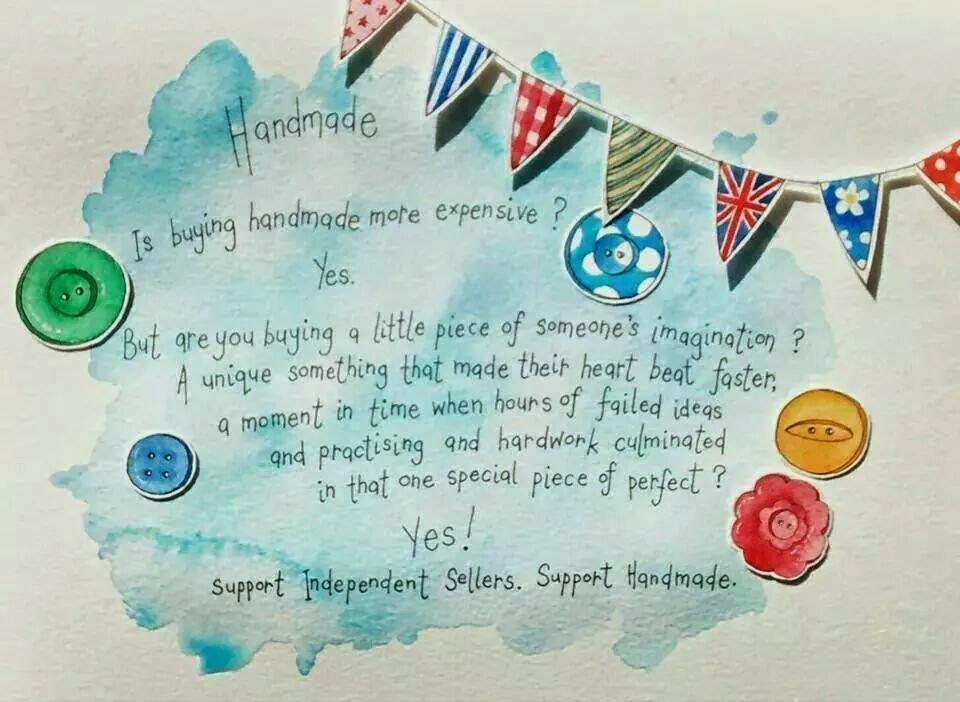 Handmade
Is buying handmade more expensive?
Yes.
But are you buying a little piece of someone's imagination?
A unique something that made their heart beat faster,
a moment in time when hours of failed ideas
and practising and hardwork culminated
in that one special piece of perfect?
Yes!
Support Independent Sellers. Support Handmade.